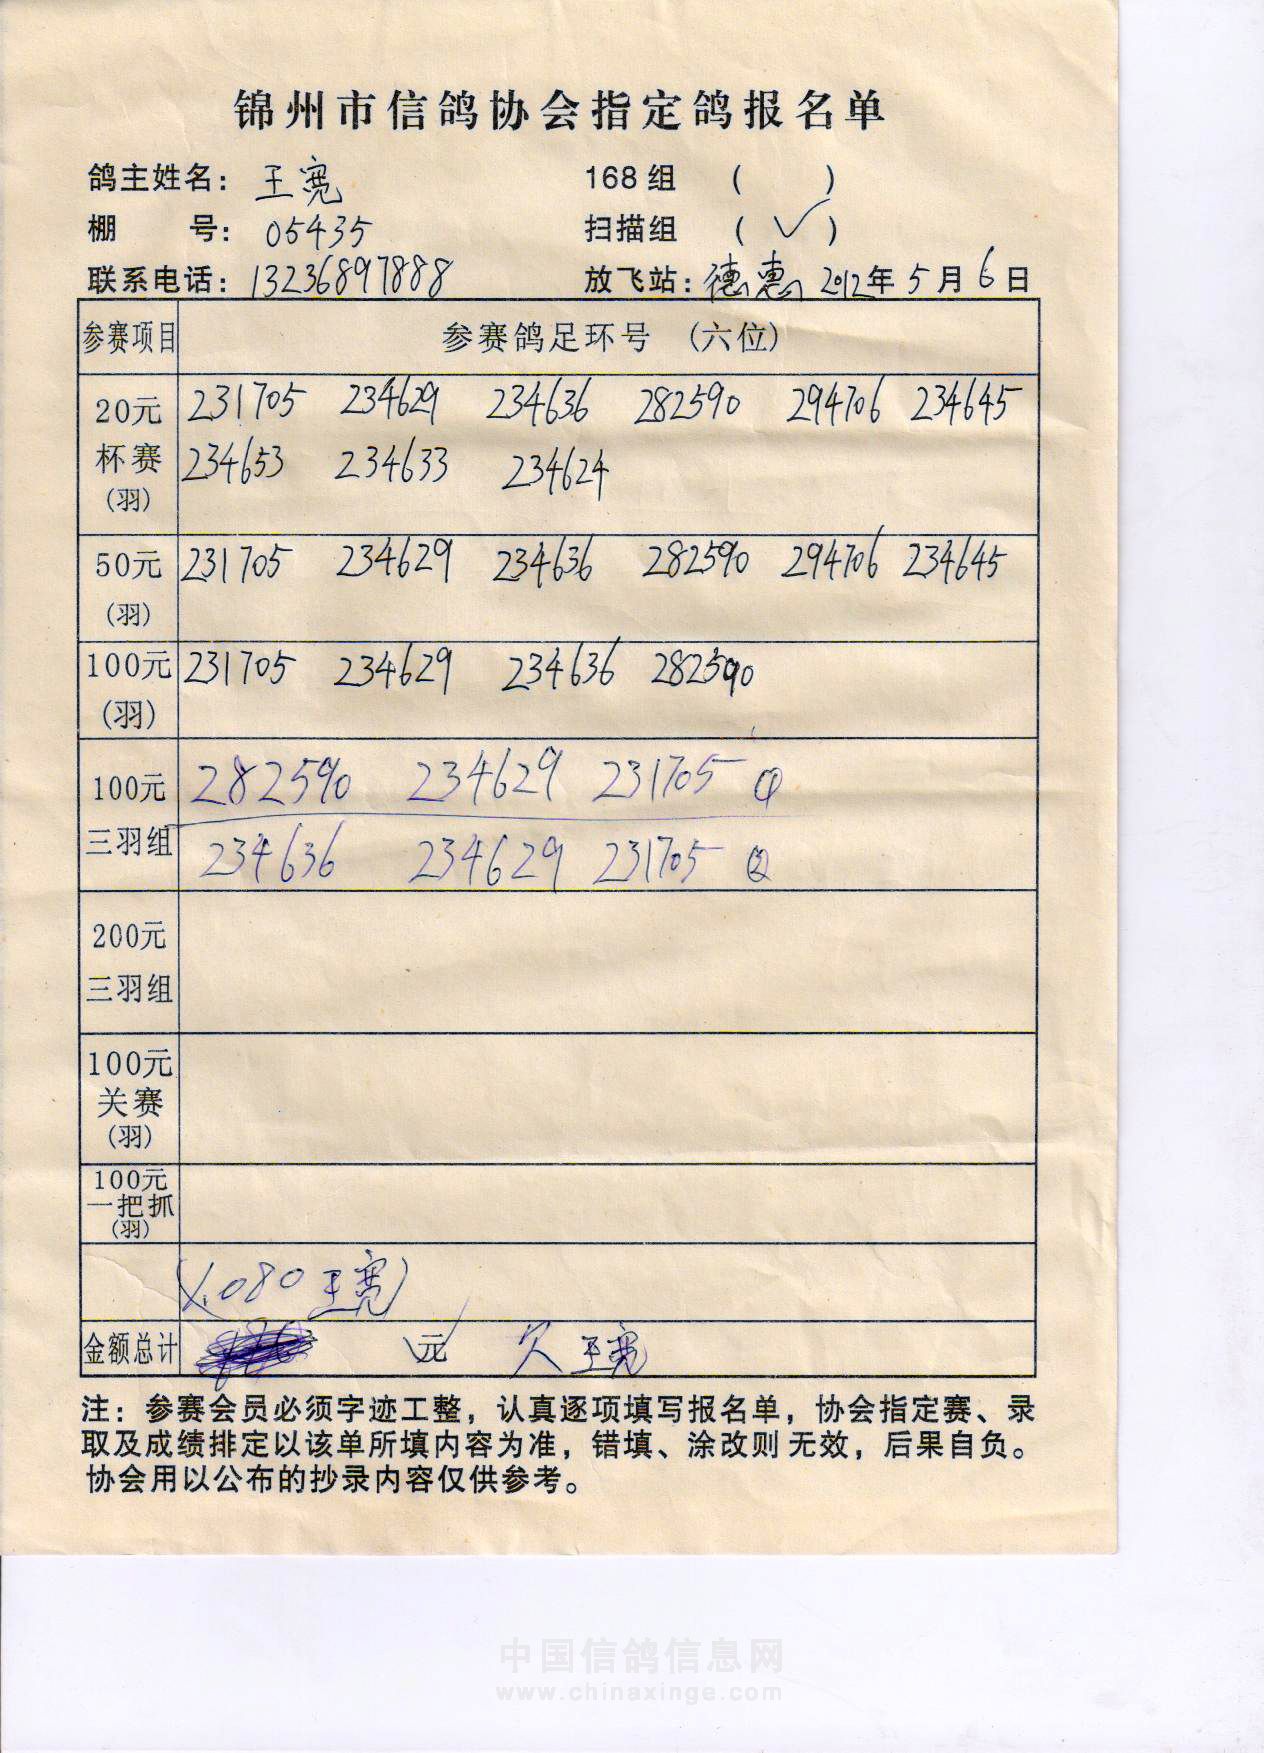 锦州市信鸽协会指定鸽报名单
鸽主姓名：王宽 168组 （ ）
棚 号：05435 扫描组 （✓）
联系电话：13236897888 放飞站：德惠 2012年5月6日
参赛项目 参赛鸽足环号 （六位）
20元 231705 234629 234636 282590 294706 234645
杯赛 234653 234633 234624
（羽）
50元 231705 234629 234636 282590 294706 234645
（羽）
100元 231705 234629 234636 282590
（羽）
100元 282590 234629 231705 ①
三羽组 234636 234629 231705 ②
200元
三羽组
100元
关赛
（羽）
100元
一把抓
（羽）
1.080 王宽
金额总计 元 欠 王宽
注：参赛会员必须字迹工整，认真逐项填写报名单，协会指定赛、录
取及成绩排定以该单所填内容为准，错填、涂改则无效，后果自负。
协会用以公布的抄录内容仅供参考。
中国信鸽信息网
www.chinaxinge.com